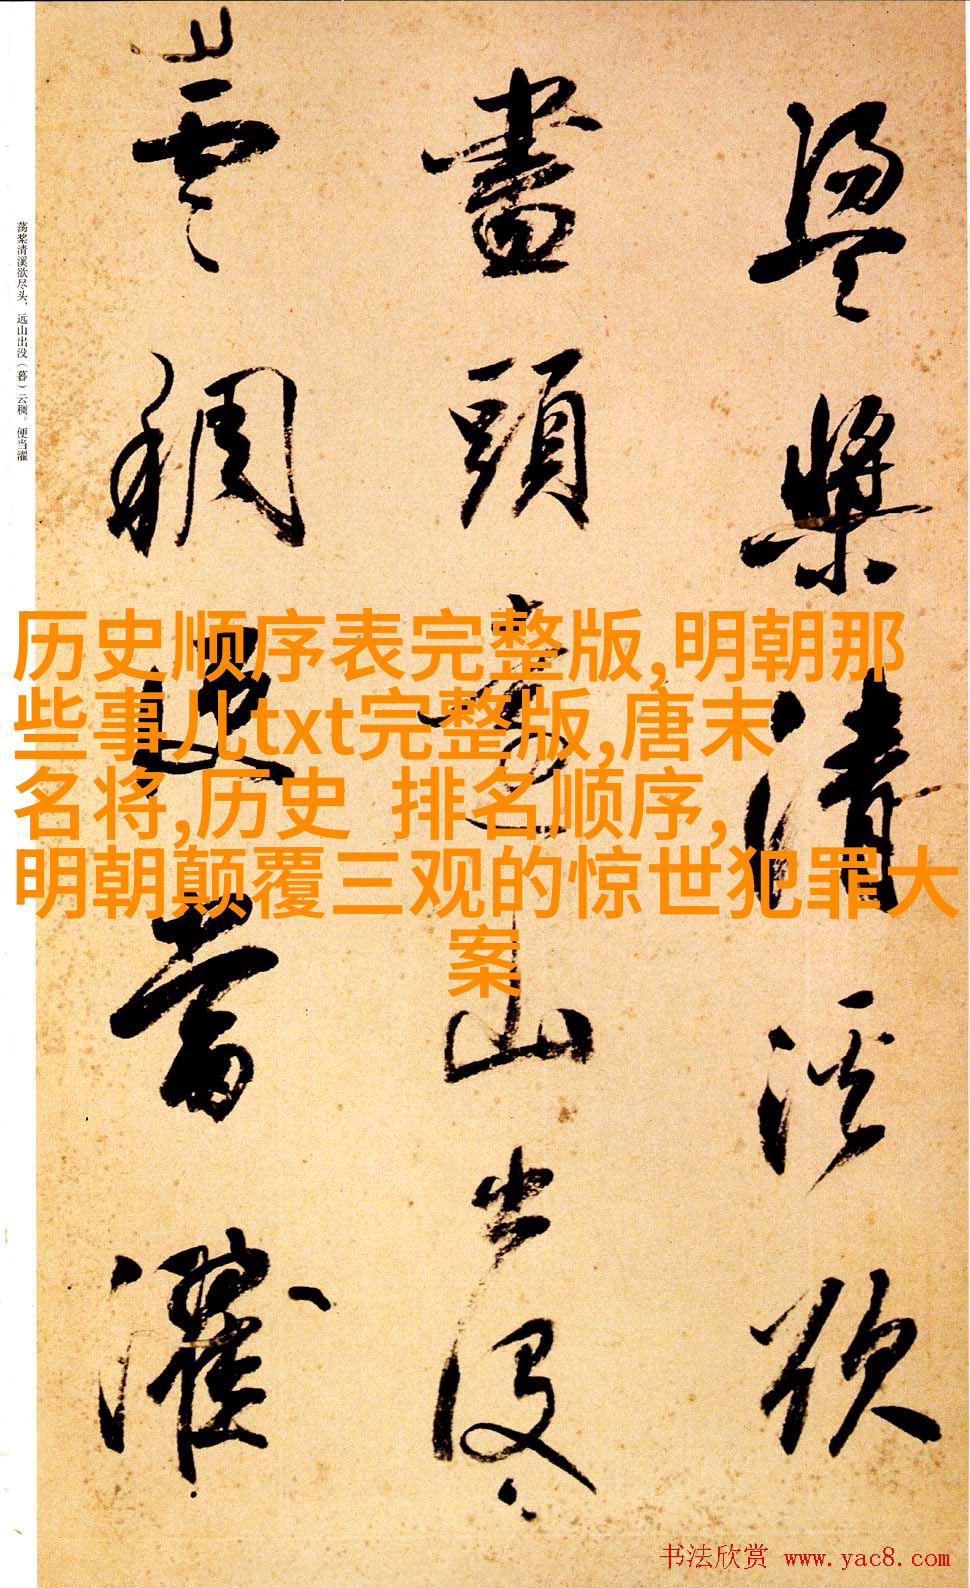 盪槳清溪欲
盡頭遠山出没
雲稠便當濯
荡桨清溪欲尽头，远山出没（暮）云稠。便当濯
历史顺序表完整版,明朝那
些事儿txt完整版,唐末
名将,历史 排名顺序,
明朝颠覆三观的惊世犯罪大
案
书法欣赏 www.yac8.com